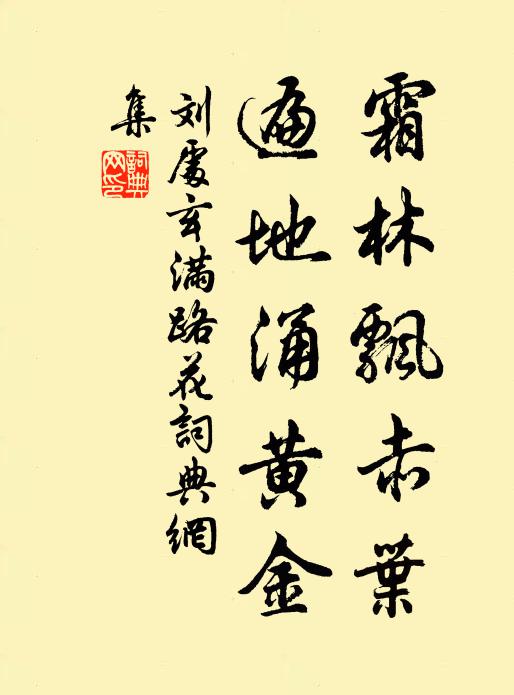 霜林飄赤葉
遍地涌黄金
刘處玄滿路花詞典網
集
詞典網印